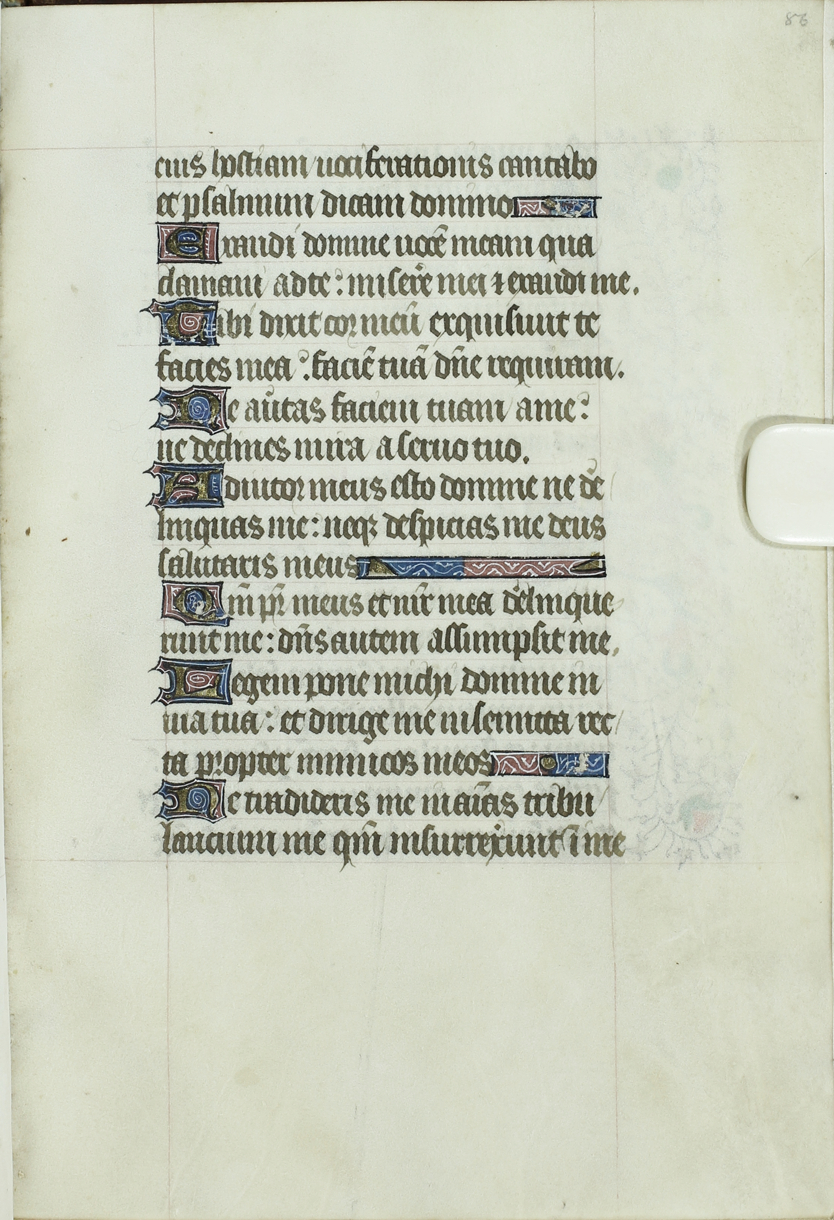 86
eius hostiam uociferationis cantabo
et psalmum dicam domino
Exaudi domine uocē meam qua
clamaui ad te: miserē mei ⁊ exaudi me.
Tibi dixit cor meū exquisiuit te
facies mea: faciē tuā dn̄e requiram.
Ne au͛tas faciem tuam a me:
ne declines in ira a seruo tuo.
Adiutor meus esto domine ne de
linquas me: neqꝫ despicias me deus
salutaris meus
Qm̄ pr̄ meus et mr̄ mea delinque
runt me: dn̄s autem assumpsit me.
Legem pone michi domine in
uia tua: et dirige me in semita rec
ta propter inimicos meos
Ne tradideris me in aīas tribu
lancium me qm̄ insurrexunt ī me